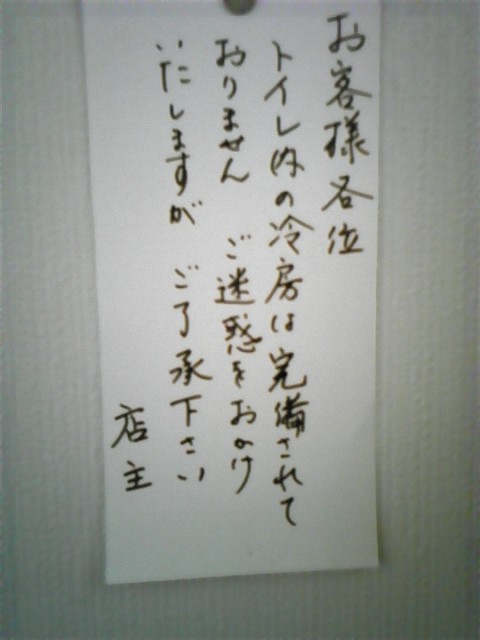 お客様各位
トイレ内の冷房は完備されて
おりません ご迷惑をおかけ
いたしますが ご了承下さい
店主